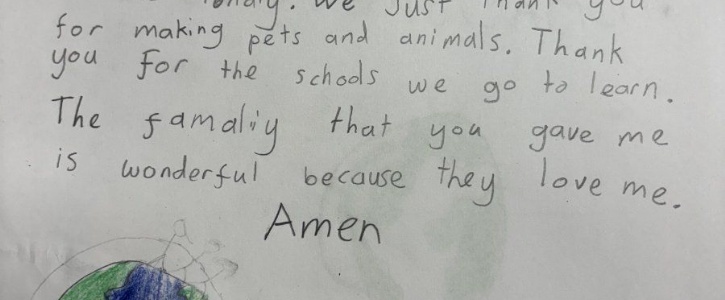 We Just Thank you
for making pets and animals. Thank
you for the schools we go to learn.
The famaliy that you gave me
is wonderful because they love me.
Amen